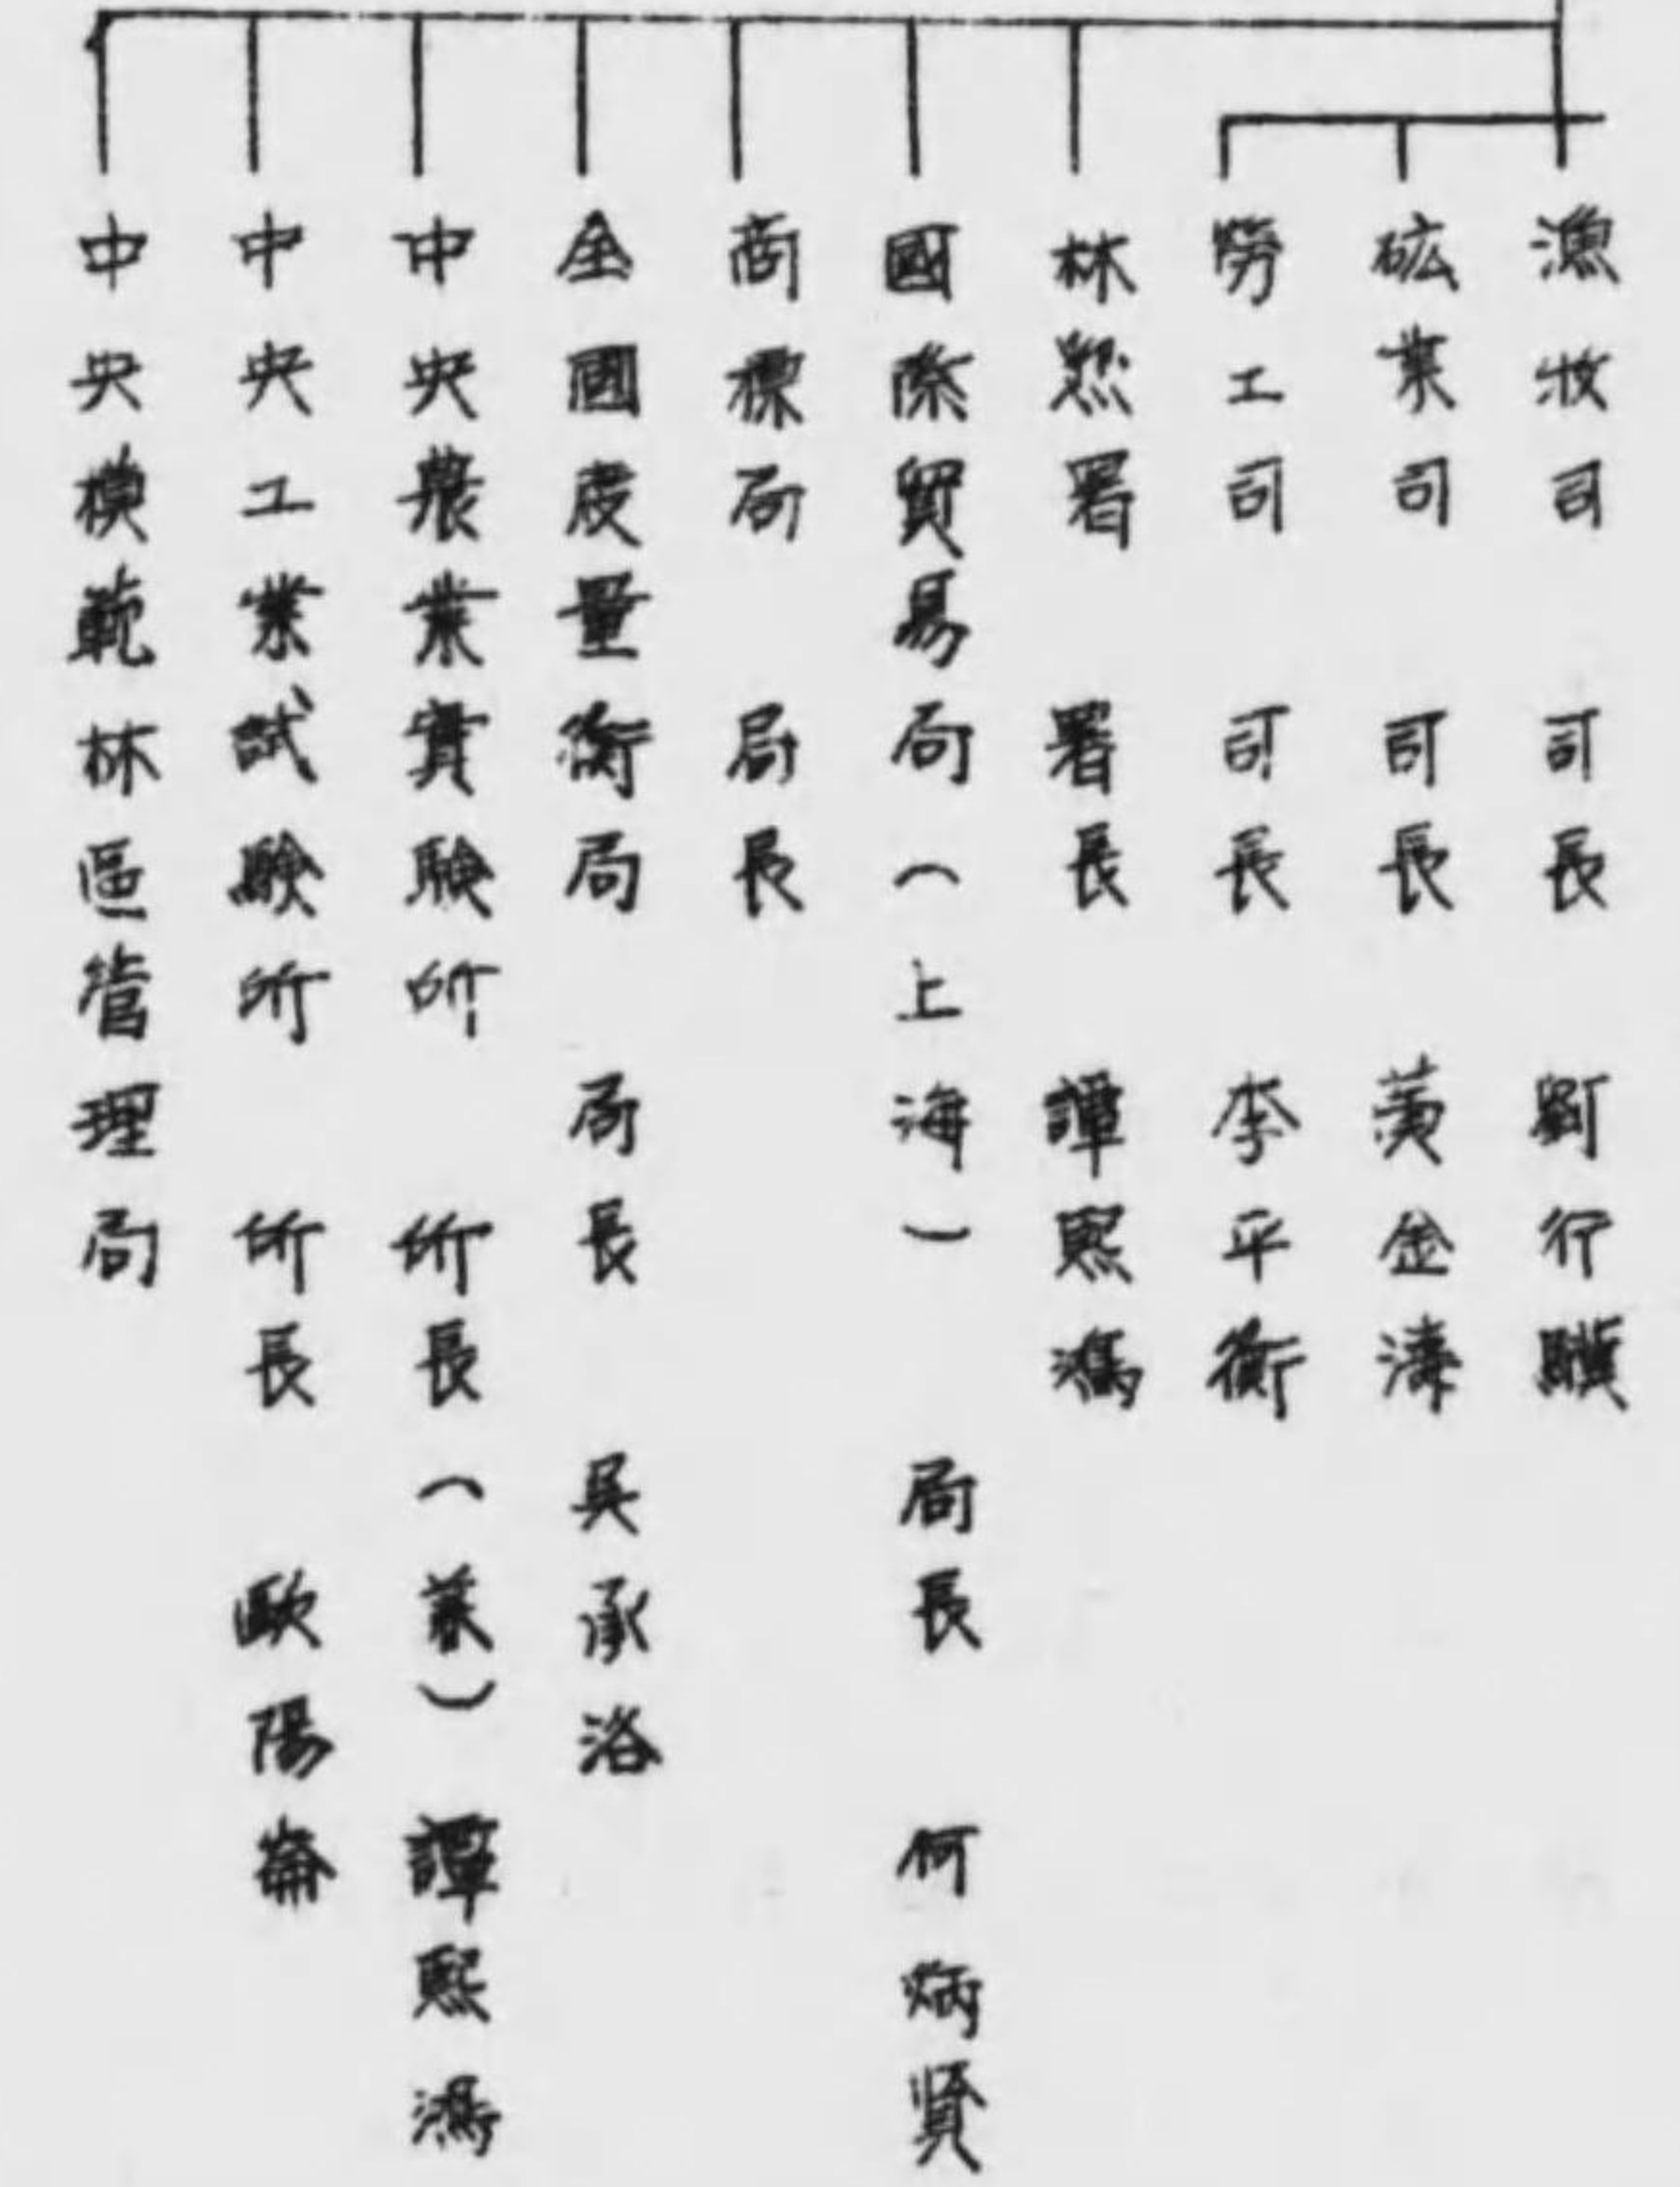 漁牧司 司長 劉行驥
砿業司 司長 黃金濤
勞工司 司長 李平衡
林墾署 署長 譚熙鴻
國際貿易局(上海) 局長 何炳賢
商標局 局長
全國度量衡局 局長 吳承洛
中央農業實驗所 所長(兼) 譚熙鴻
中央工業試驗所 所長 歐陽崙
中央模範林區管理局